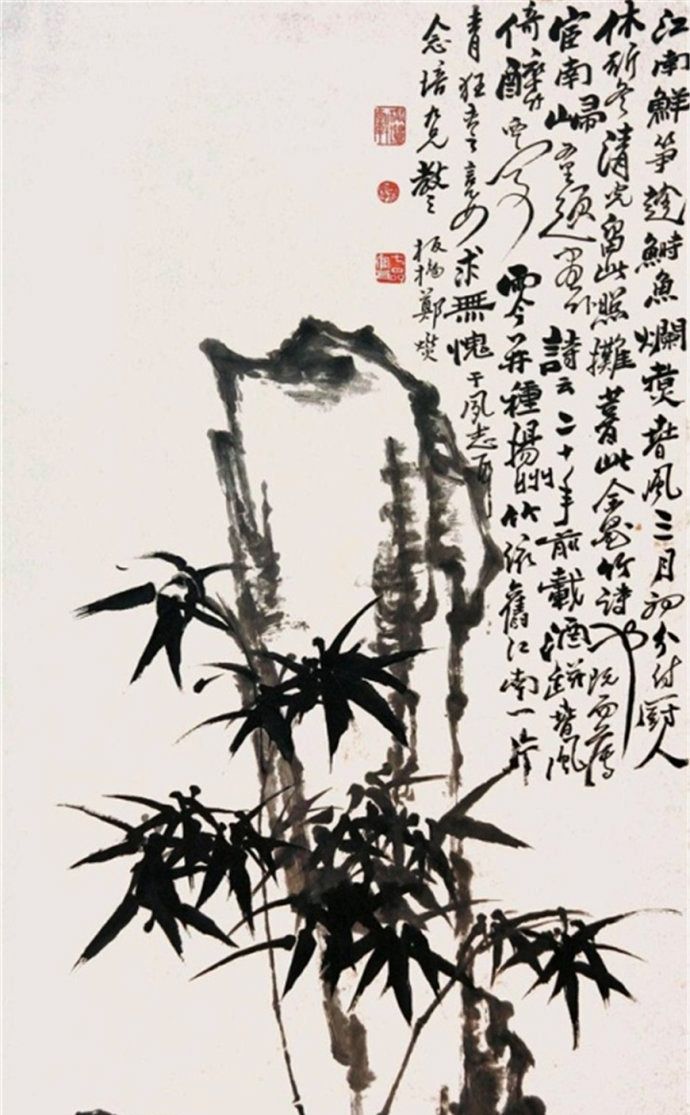 江南鮮笋趁鰣魚爛煮春風三月初分付厨人
休斫盡清光留此照攤書此余畫竹詩也既而罷
官南歸重題畫竹詩云二十年前載酒瓶春風
倚醉竹西亭而今再種揚州竹依舊江南一片
青狂求無愧于夙志耳
念培九兄教之 板橋鄭燮